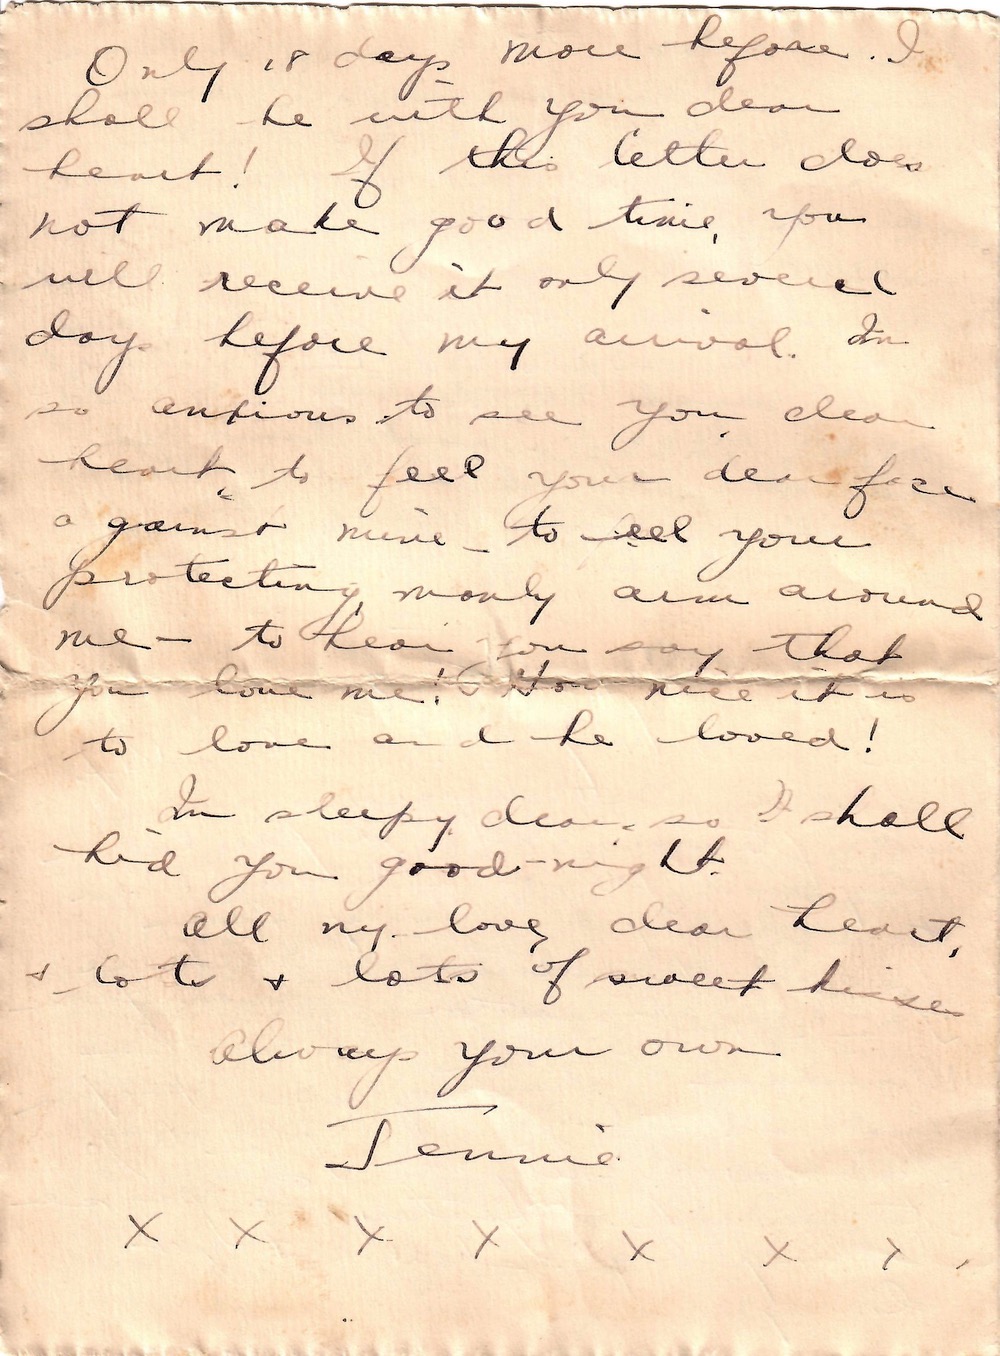 Only 18 days more before I
shall be with you dear
heart! If this letter does
not make good time, you
will receive it only several
days before my arrival. Im
so anxious to see you, dear
heart, to feel your dear face
against mine - to feel your
protecting, manly arm around
me - to hear you say that
you love me! How nice it is
to love and be loved!
Im sleepy, dear, so I shall
bid you good-night.
All my love, dear heart,
+ lots + lots of sweet kisses
Always your own
Jennie
x x x x x x x